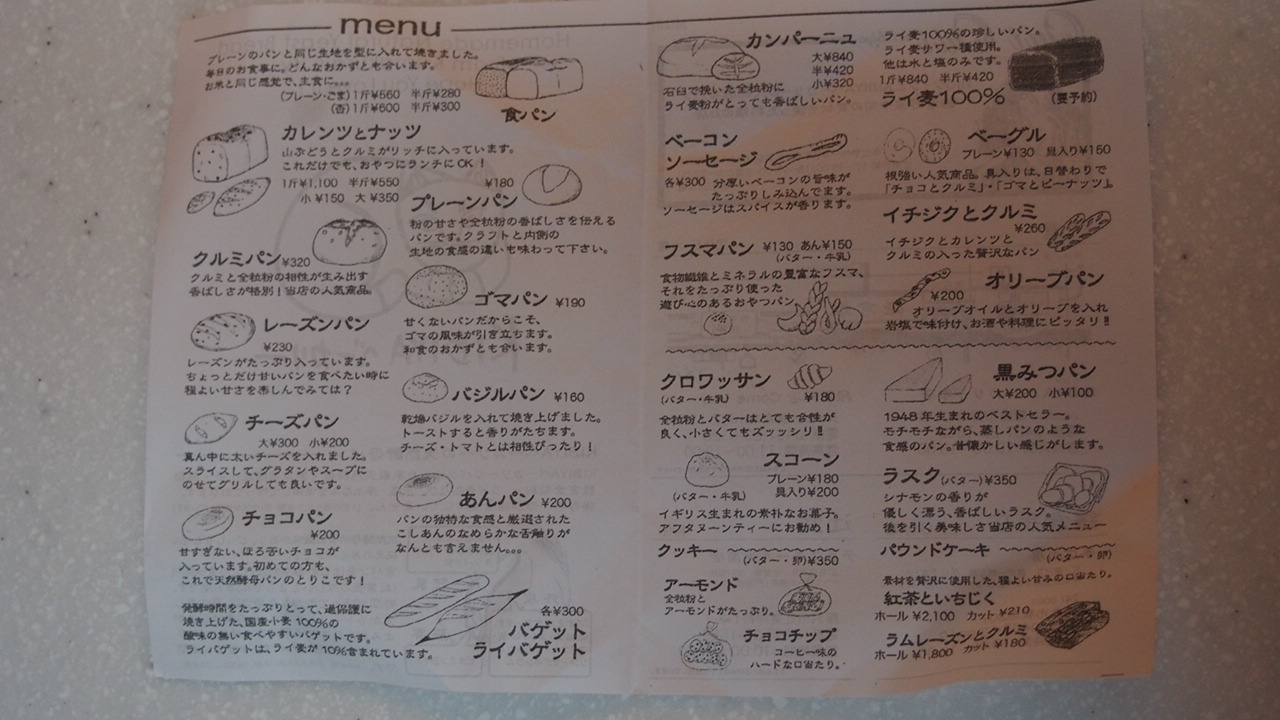 menu
プレーンのパンと同じ生地を型に入れて焼きました。
毎日のお食事に。どんなおかずとも合います。
お米と同じ感覚で、主食に…
(プレーン・ごま)1斤¥560 半斤¥280
(杏)1斤¥600 半斤¥300
食パン
カレンツとナッツ
山ぶどうとクルミがリッチに入っています。
これだけでも、おやつにランチにOK！
1斤¥1,100 半斤¥550
小¥150 大¥350
¥180
プレーンパン
粉の甘さや全粒粉の香ばしさを伝える
パンです。クラフトと内側の
生地の食感の違いも味わって下さい。
クルミパン¥320
クルミと全粒粉の相性が生み出す
香ばしさが格別！当店の人気商品。
ゴマパン ¥190
甘くないパンだからこそ、
ゴマの風味が引き立ちます。
和食のおかずとも合います。
レーズンパン
¥230
レーズンがたっぷり入っています。
ちょっとだけ甘いパンを食べたい時に
程よい甘さを楽しんでみては？
バジルパン ¥160
乾燥バジルを入れて焼き上げました。
トーストすると香りがたちます。
チーズ・トマトとは相性ぴったり！
チーズパン
大¥300 小¥200
真ん中に太いチーズを入れました。
スライスして、グラタンやスープに
のせてグリルしても良いです。
あんパン ¥200
パンの独特な食感と厳選された
こしあんのなめらかな舌触りが
なんとも言えません。。。
チョコパン
¥200
甘すぎない、ほろ苦いチョコが
入っています。初めての方も、
これで天然酵母パンのとりこです！
発酵時間をたっぷりとって、過保護に
焼き上げた、国産小麦100%の
酸味の無い食べやすいバゲットです。
ライバゲットは、ライ麦が10%含まれています。
各¥300
バゲット
ライバゲット
カンパーニュ
大¥840
半¥420
小¥320
石臼で挽いた全粒粉に
ライ麦粉がとっても香ばしいパン。
ライ麦100%の珍しいパン。
ライ麦サワー種使用。
他は水と塩のみです。
1斤¥840 半斤¥420
ライ麦100%
(要予約)
ベーコン
ソーセージ
各¥300 分厚いベーコンの旨味が
たっぷりしみ込んでます。
ソーセージはスパイスが香ります。
ベーグル
プレーン¥130 具入り¥150
根強い人気商品。具入りは、日替わりで
「チョコとクルミ」・「ゴマとピーナッツ」。
フスマパン ¥130 あん¥150
(バター・牛乳)
食物繊維とミネラルの豊富なフスマ、
それをたっぷり使った
遊び心のあるおやつパン
イチジクとクルミ
¥260
イチジクとカレンツと
クルミの入った贅沢なパン
オリーブパン
¥200
オリーブオイルとオリーブを入れ
岩塩で味付け、お酒や料理にピッタリ!!
クロワッサン
(バター・牛乳)
¥180
全粒粉とバターはとても合性が
良く、小さくてもズッッシリ!!
黒みつパン
大¥200 小¥100
1948年生まれのベストセラー。
モチモチながら、蒸しパンのような
食感のパン。昔懐かしい感じがします。
スコーン
プレーン¥180
(バター・牛乳) 具入り¥200
イギリス生まれの素朴なお菓子。
アフタヌーンティーにお勧め！
ラスク(バター)¥350
シナモンの香りが
優しく漂う、香ばしいラスク。
後を引く美味しさ当店の人気メニュー
クッキー
(バター・卵)¥350
アーモンド
全粒粉と
アーモンドがたっぷり。
チョコチップ
コーヒー味の
ハードな口当たり。
パウンドケーキ
(バター・卵)
素材を贅沢に使用した、程よい甘みの口当たり。
紅茶といちじく
ホール¥2,100 カット¥210
ラムレーズンとクルミ
ホール¥1,800 カット¥180